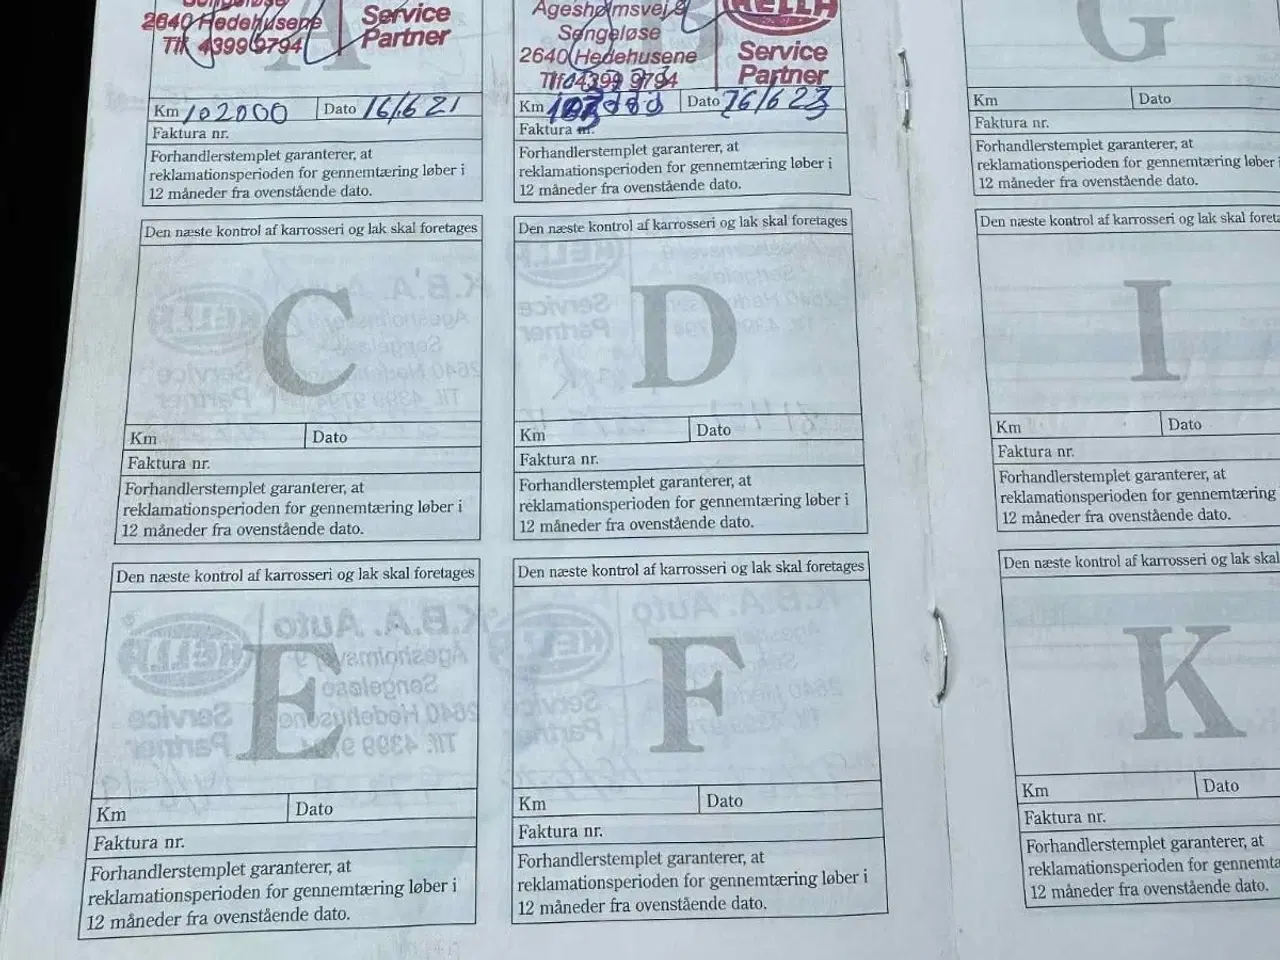 2640 Hedehusene
Tlf. 4399 9794
Service
Partner
Km 102000 Dato 16/6 21
Faktura nr.
Forhandlerstemplet garanterer, at
reklamationsperioden for gennemtæring løber i
12 måneder fra ovenstående dato.
Agesholmsvej 9
Sengeløse
2640 Hedehusene
Tlf. 4399 9794
HELLA
Service
Partner
Km Dato 16/6 23
Faktura nr.
Forhandlerstemplet garanterer, at
reklamationsperioden for gennemtæring løber i
12 måneder fra ovenstående dato.
G
Km Dato
Faktura nr.
Forhandlerstemplet garanterer, at
reklamationsperioden for gennemtæring løber
12 måneder fra ovenstående dato.
Den næste kontrol af karrosseri og lak skal foretages
C
Km Dato
Faktura nr.
Forhandlerstemplet garanterer, at
reklamationsperioden for gennemtæring løber i
12 måneder fra ovenstående dato.
Den næste kontrol af karrosseri og lak skal foretages
D
Km Dato
Faktura nr.
Forhandlerstemplet garanterer, at
reklamationsperioden for gennemtæring løber i
12 måneder fra ovenstående dato.
Den næste kontrol af karrosseri og lak skal foreta
I
Km Dato
Faktura nr.
Forhandlerstemplet garanterer, at
reklamationsperioden for gennemtæring
12 måneder fra ovenstående dato.
Den næste kontrol af karrosseri og lak skal foretages
E
Km Dato
Faktura nr.
Forhandlerstemplet garanterer, at
reklamationsperioden for gennemtæring løber i
12 måneder fra ovenstående dato.
Den næste kontrol af karrosseri og lak skal foretages
F
Km Dato
Faktura nr.
Forhandlerstemplet garanterer, at
reklamationsperioden for gennemtæring løber i
12 måneder fra ovenstående dato.
Den næste kontrol af karrosseri og lak skal
K
Km Dato
Faktura nr.
Forhandlerstemplet garanterer, at
reklamationsperioden for gennemtæ
12 måneder fra ovenstående dato.